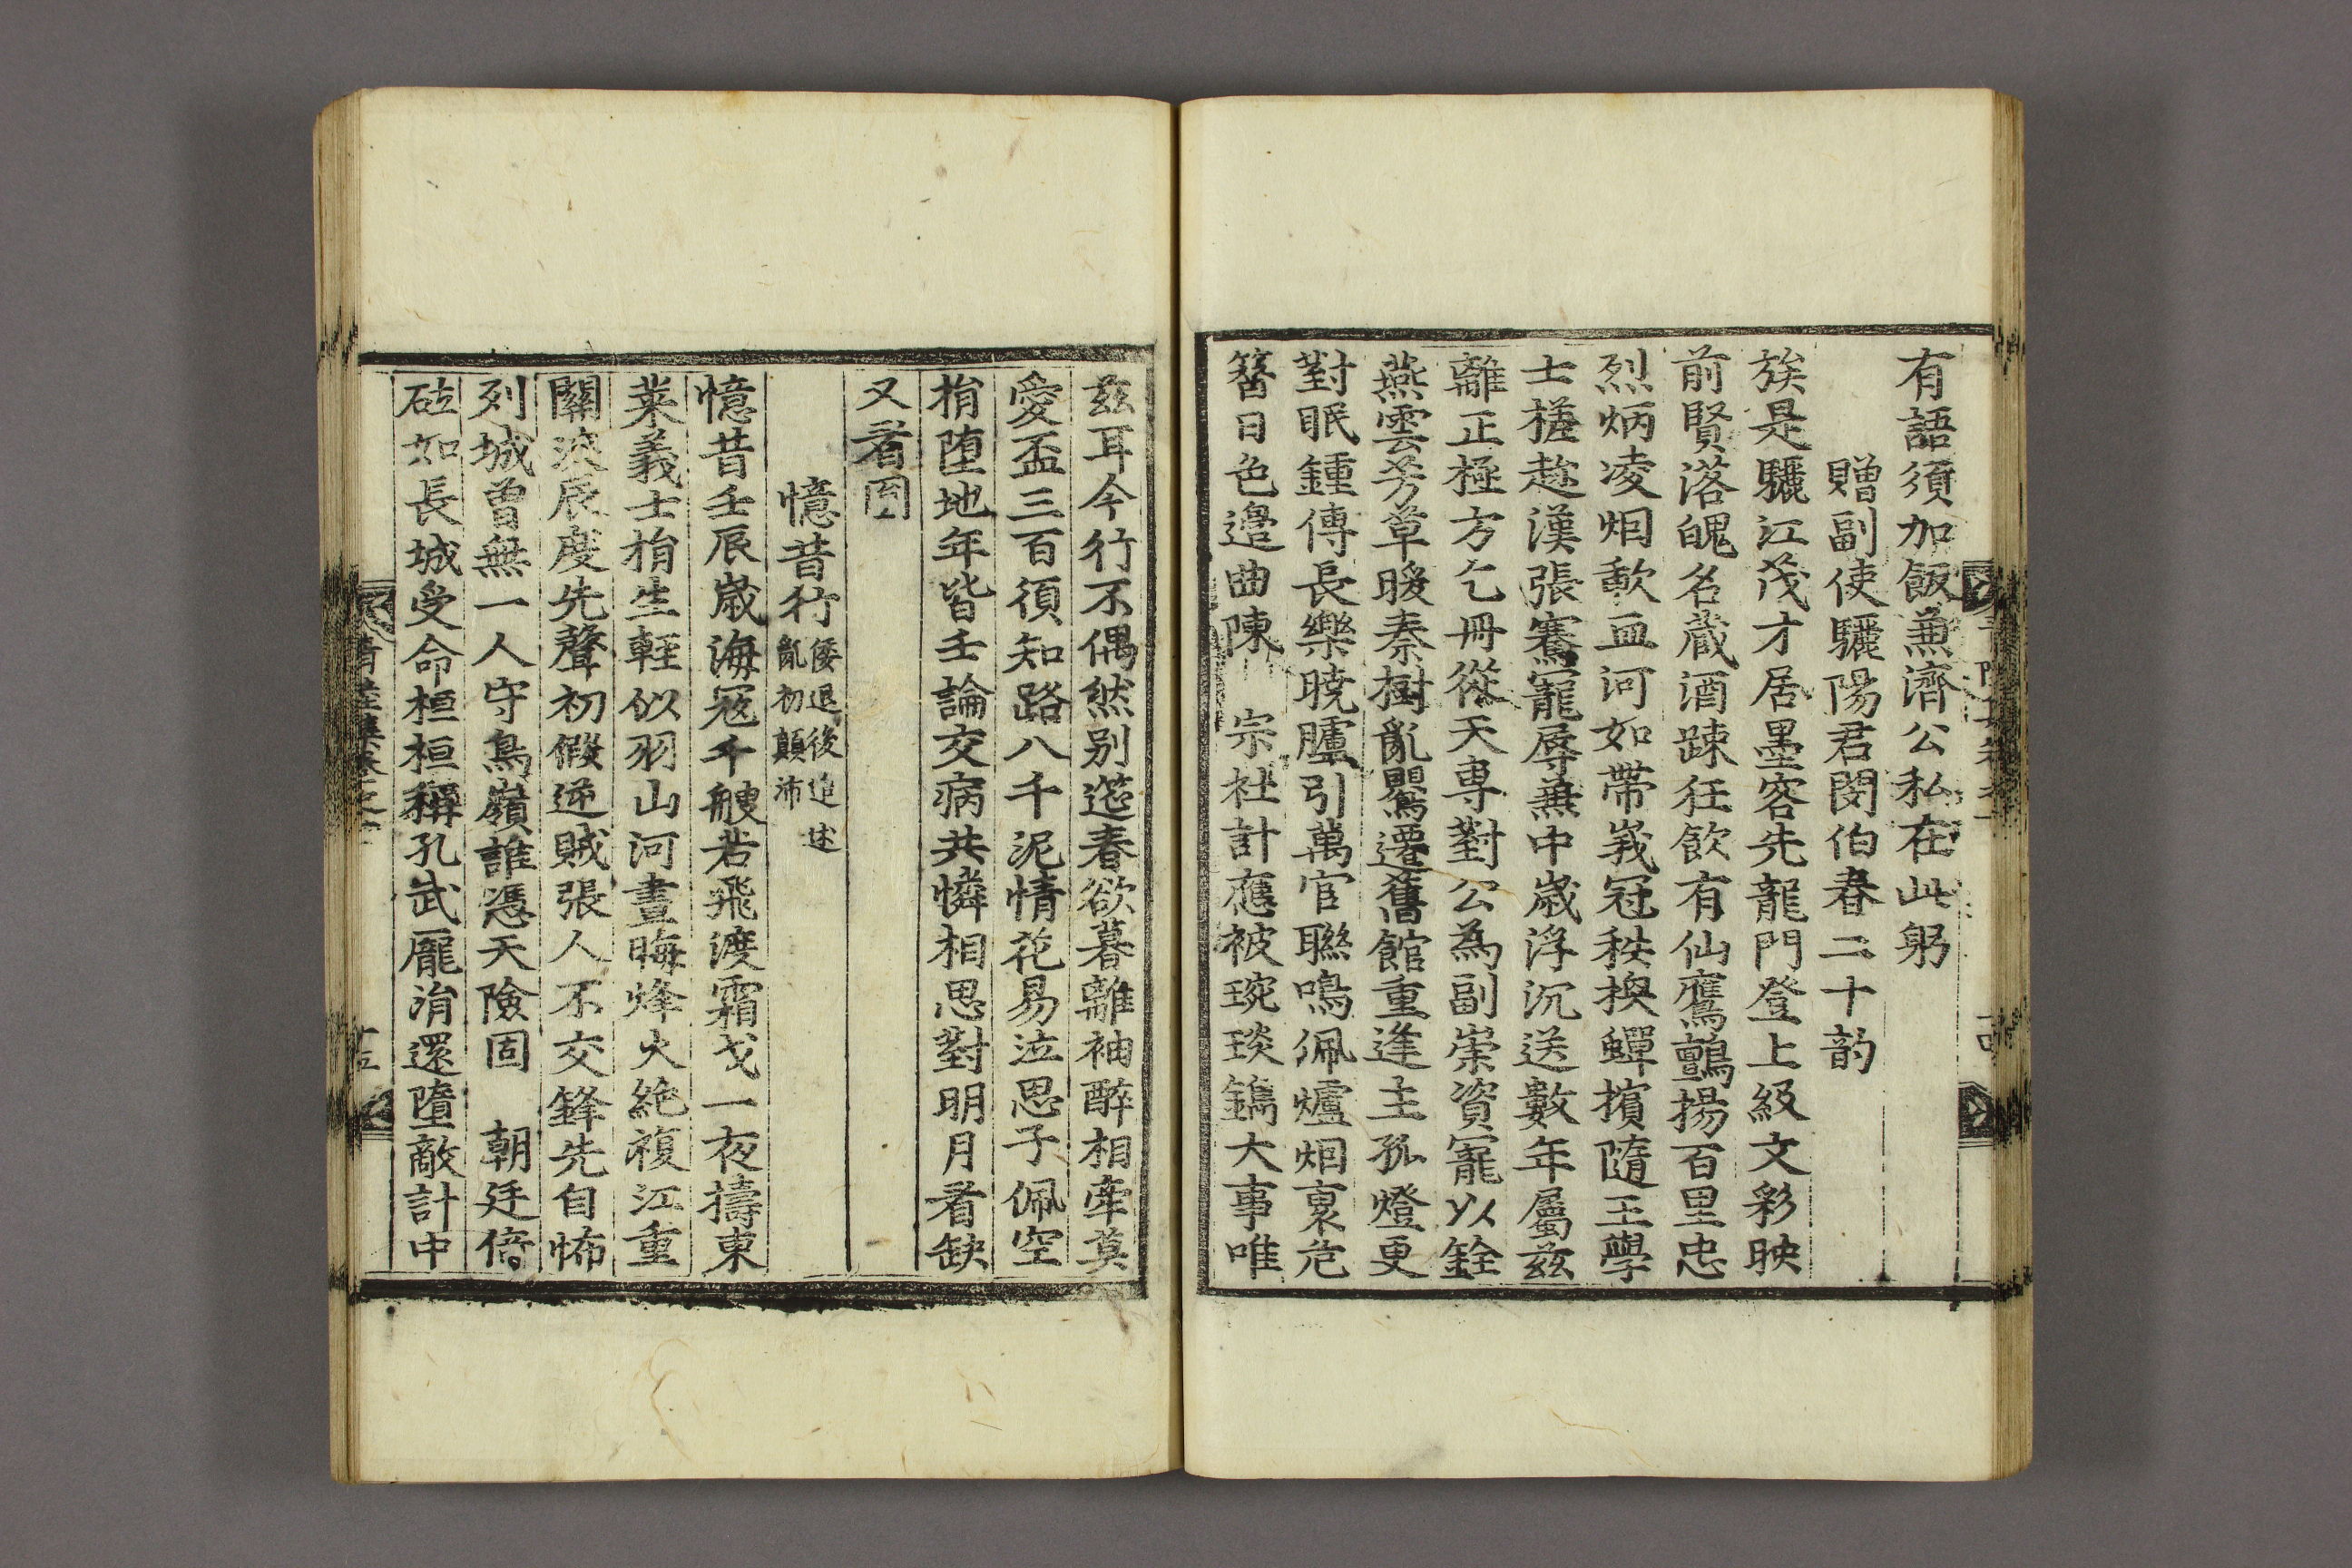 有語須加飯兼濟公私在此躬
贈副使驪陽君閔伯春二十韵
族是驪江茂才居墨客先龍門登上級文彩映
前賢落魄名蔵酒踈狂飲有仙鷹鸇揚百里忠
烈炳凌烟歃血河如帶峩冠秩換蟬擯隨王學
士槎趂漢張騫寵辱無中歲浮沉送數年屬兹
離正極方乞冊從天專對公為副崇資寵以銓
燕雲芳草暖秦樹亂鸎遷舊館重逢主孤燈更
對眠鍾傳長樂曉臚引萬官聯鳴佩爐烟裏危
簪日色邉曲陳 宗社計應被琬琰鐫大事唯
兹耳今行不偶然别筵春欲暮離袖醉相牽莫
愛盃三百須知路八千泥情花易泣思子佩空
捐堕地年皆壬論交病共憐相思對明月看缺
又看圓
憶昔行
倭退後追述
亂初顛沛
憶昔壬辰歲海冦千艘若飛渡霜戈一夜擣東
莱義士捐生輕似羽山河晝晦烽火絶複江重
關浹辰度先聲初假逆賊張人不交鋒先自怖
列城曾無一人守鳥嶺誰憑天險固 朝廷倚
砬如長城受命桓桓稱孔武龐涓還墮敵計中
十五